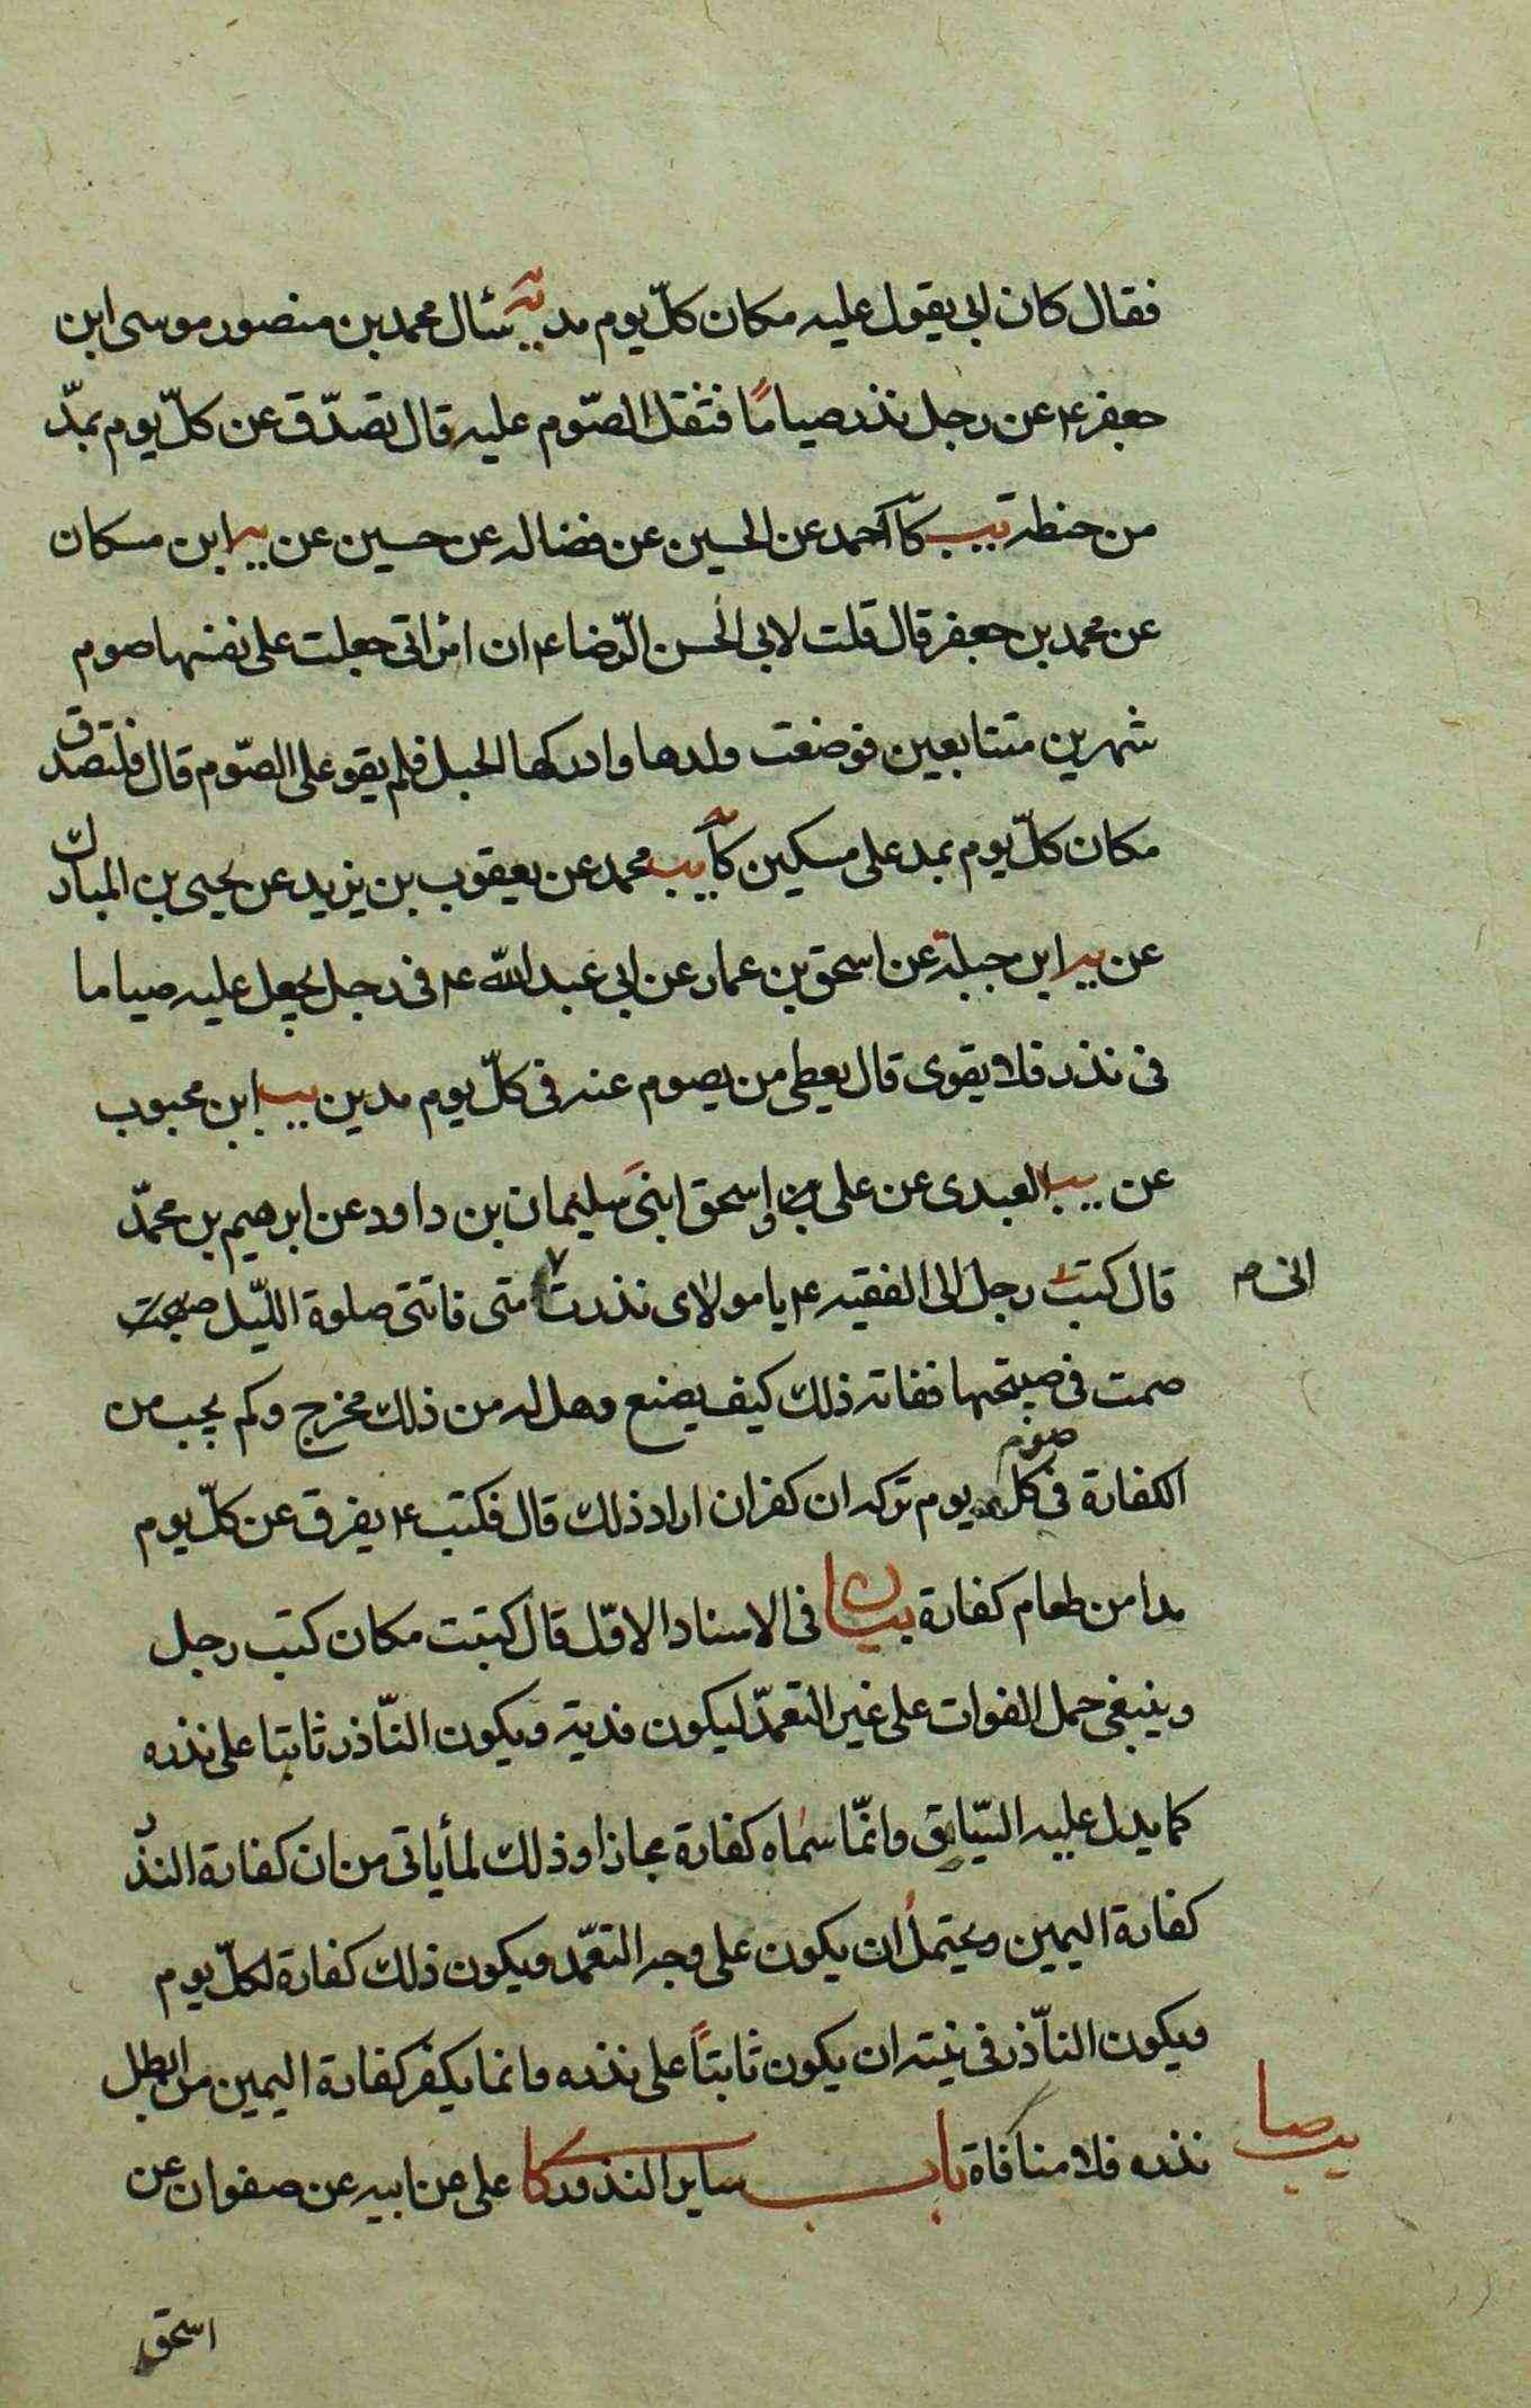 فقال كان ابي يقول عليه مكان كلّ يوم مد يه سئال محمد بن منصور موسى ابن
جعفر ع عن رجل نذر صياماً فثقل الصّوم عليه قال تصدّق عن كلّ يوم بمدّ
من حنطه يب كا احمد عن الحسين عن فضاله عن حسين عن يب ابن مسكان
عن محمد بن جعفر قال قلت لابي الحسن الرّضا ع ان امراتي جعلت على نفسها صوم
شهرين متتابعين فوضعت ولدها وادركها الحبل فلم يقو على الصّوم قال فلتصدق
مكان كلّ يوم بمد على مسكين كا يب محمد عن يعقوب بن يزيد عن يحيى بن المبارك
عن يب ابن جبلة عن اسحق بن عمار عن ابي عبد اللّه ع في رجل يجعل عليه صياما
في نذر فلا يقوى قال يعطى من يصوم عنه في كلّ يوم مدين يب ابن محبوب
عن يب العبدى عن على و اسحق ابنى سليمان بن داود عن ابرهيم بن محمّد
قال كتب رجل الى الفقيه ع يا مولاى نذرت متى فاتتى صلوة اللّيل صبحت
انى م
صمت في صبحتها ففاته ذلك كيف يصنع وهل له من ذلك مخرج وكم يجب من
الكفارة في صوم كل يوم تركه ان كفران اراد ذلك قال فكتب ع يفرق عن كلّ يوم
مدا من طعام كفارة بيان في الاسناد الاوّل قال كتبت مكان كتب رجل
وينبغى حمل الفوات على غير التعمّد ليكون فدية ويكون النّاذر ثابتا على نذره
كما يدل عليه السّياق وانّما سماه كفارة مجازا وذلك لما ياتي من ان كفارة النذر
كفارة اليمين ويحتمل ان يكون على وجه التعمّد ويكون ذلك كفارة لكلّ يوم
ويكون النّاذر في نيته ان يكون ثابتاً على نذره وانما يكفر كفارة اليمين من ابطل
نذره فلا منافاة باب ساير النذور كا على عن ابيه عن صفوان عن
يب صا
اسحق